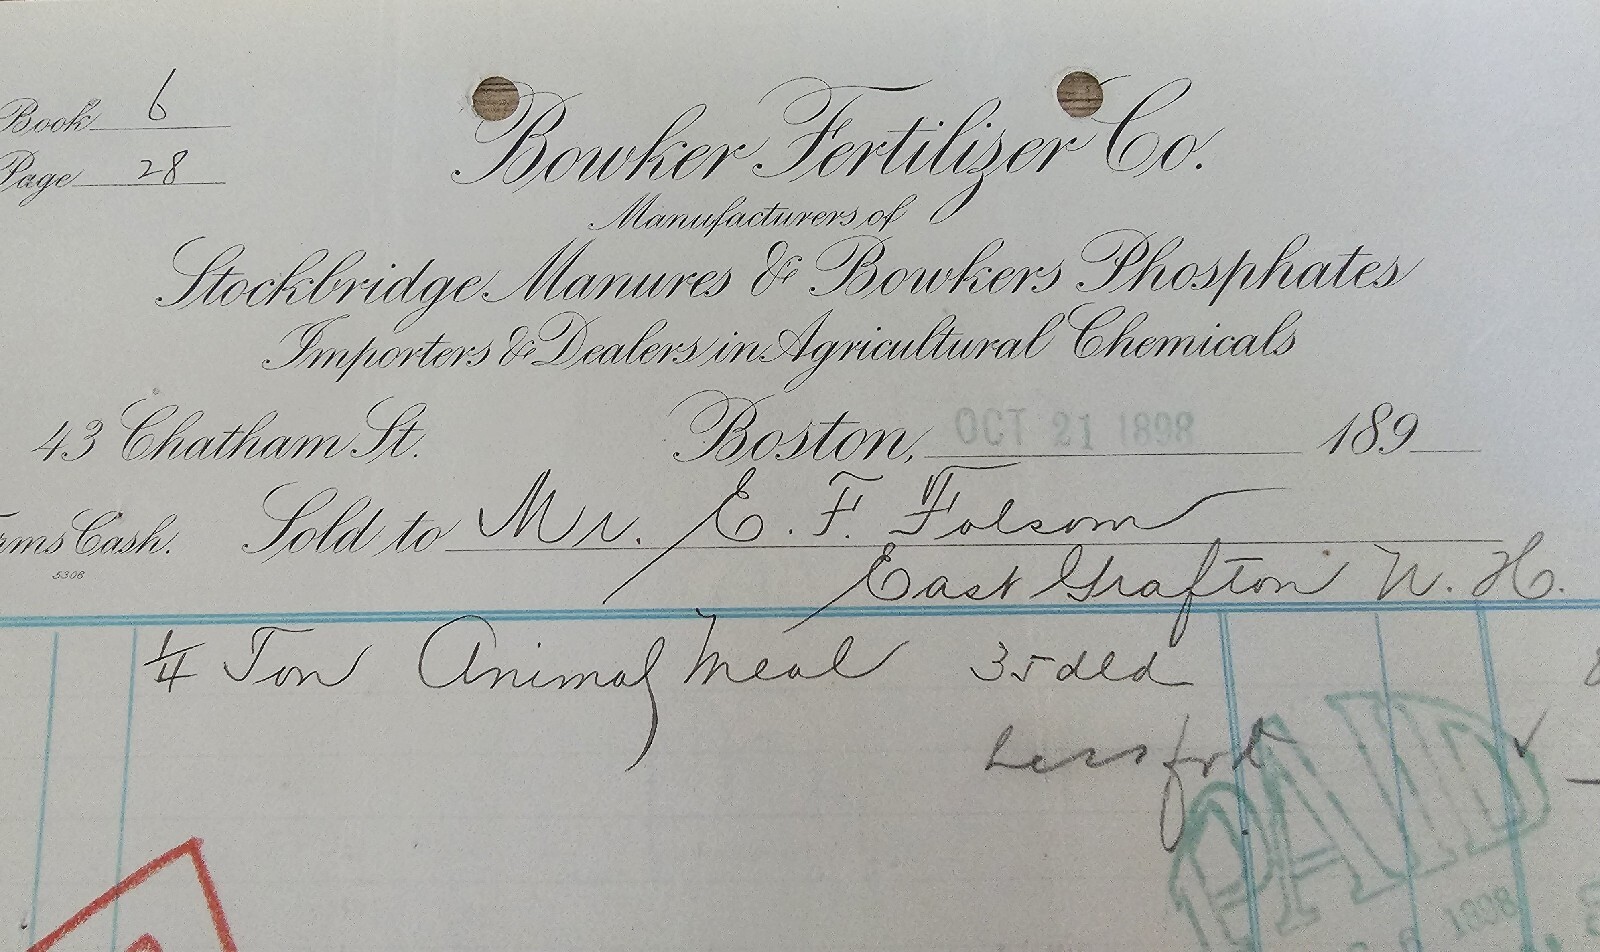 Book 6
Page 28
Bowker Fertilizer Co.
Manufacturers of
Stockbridge Manures & Bowkers Phosphates
Importers & Dealers in Agricultural Chemicals
43 Chatham St. Boston, OCT 21 1898 189
rms Cash. Sold to Mr. E. F. Folsom
5306
East Grafton N. H.
1/4 Ton Animal Meal 35 dld
Less frt
PAID
1898